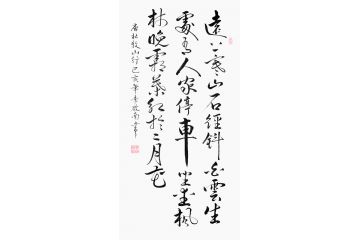 遠上寒山石徑斜白雲生
處有人家停車坐愛楓
林晚霜葉紅於二月花
唐杜牧山行己亥